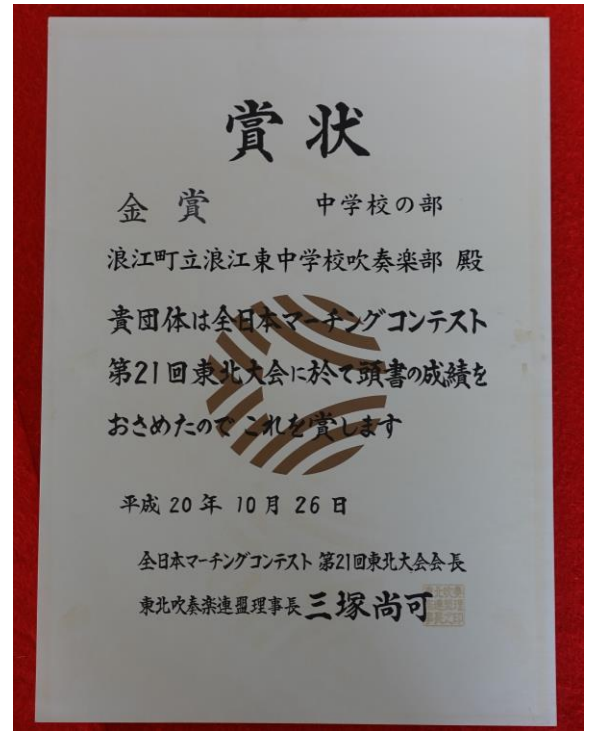 賞状
金賞 中学校の部
浪江町立浪江東中学校吹奏楽部 殿
貴団体は全日本マーチングコンテスト
第21回東北大会に於て頭書の成績を
おさめたのでこれを賞します
平成20年10月26日
全日本マーチングコンテスト 第21回東北大会会長
東北吹奏楽連盟理事長 三塚尚可